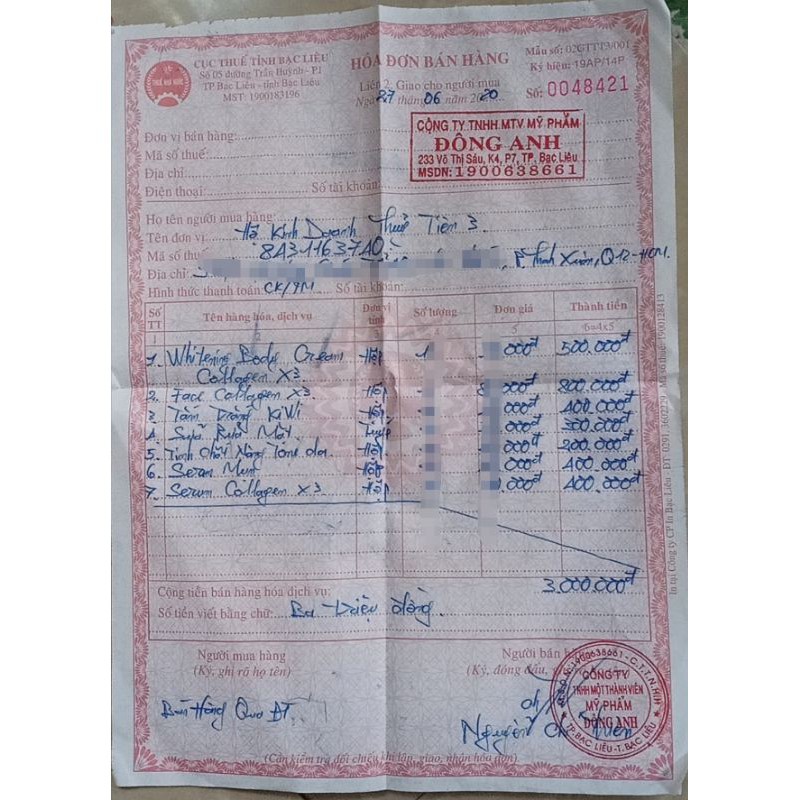 CỤC THUẾ TỈNH BẠC LIÊU
Số 05 đường Trần Huỳnh - P.1
TP Bạc Liêu - tỉnh Bạc Liêu
MST: 1900183196
THUẾ NHÀ NƯỚC
HÓA ĐƠN BÁN HÀNG
Liên 2: Giao cho người mua
Ngày 27 tháng 06 năm 2020
Mẫu số: 02GTTT3/001
Ký hiệu: 19AP/14P
Số: 0048421
CÔNG TY TNHH MTV MỸ PHẨM
ĐÔNG ANH
233 Võ Thị Sáu, K4, P7, TP. Bạc Liêu
MSDN: 1900638661
Đơn vị bán hàng:
Mã số thuế:
Địa chỉ:
Điện thoại: Số tài khoản:
Họ tên người mua hàng:
Tên đơn vị: Hộ Kinh Doanh Thuỷ Tiên 3
Mã số thuế: 8431163740
Địa chỉ: P. Thạnh Xuân, Q12-HCM.
Hình thức thanh toán: CK/TM Số tài khoản:
Số TT Tên hàng hóa, dịch vụ Đơn vị tính Số lượng Đơn giá Thành tiền
1 5 6=4x5
1. Whitening Body Cream Hộp 1 000đ 500.000đ
Collagen X3
2. Face Collagen X3 Hộp 000đ 800.000đ
3 Tắm Trắng KiWi Hộp 000đ 400.000đ
4 Sữa Rửa Mặt Tuýp 000đ 300.000đ
5. Tinh Chất Nâng Tone da Hộp 000đ 200.000đ
6 Serum Mụn Hộp 000đ 400.000đ
7. Serum Collagen X3 Hộp 000đ 400.000đ
Cộng tiền bán hàng hóa dịch vụ: 3.000.000đ
Số tiền viết bằng chữ: Ba Triệu đồng.
Người mua hàng
(Ký, ghi rõ họ tên)
Bán Hàng Qua ĐT
Người bán hàng
(Ký, đóng dấu, ghi rõ họ tên)
Nguyễn
M.S.D.N:1900638661-C.T.T.N.H.H
CÔNG TY
TNHH MỘT THÀNH VIÊN
MỸ PHẨM
ĐÔNG ANH
TP. BẠC LIÊU - T. BẠC LIÊU
(Cần kiểm tra đối chiếu khi lập, giao, nhận hóa đơn)
In tại Công ty CP In Bạc Liêu - ĐT: 0291.3602229 - Mã số thuế: 1900128413